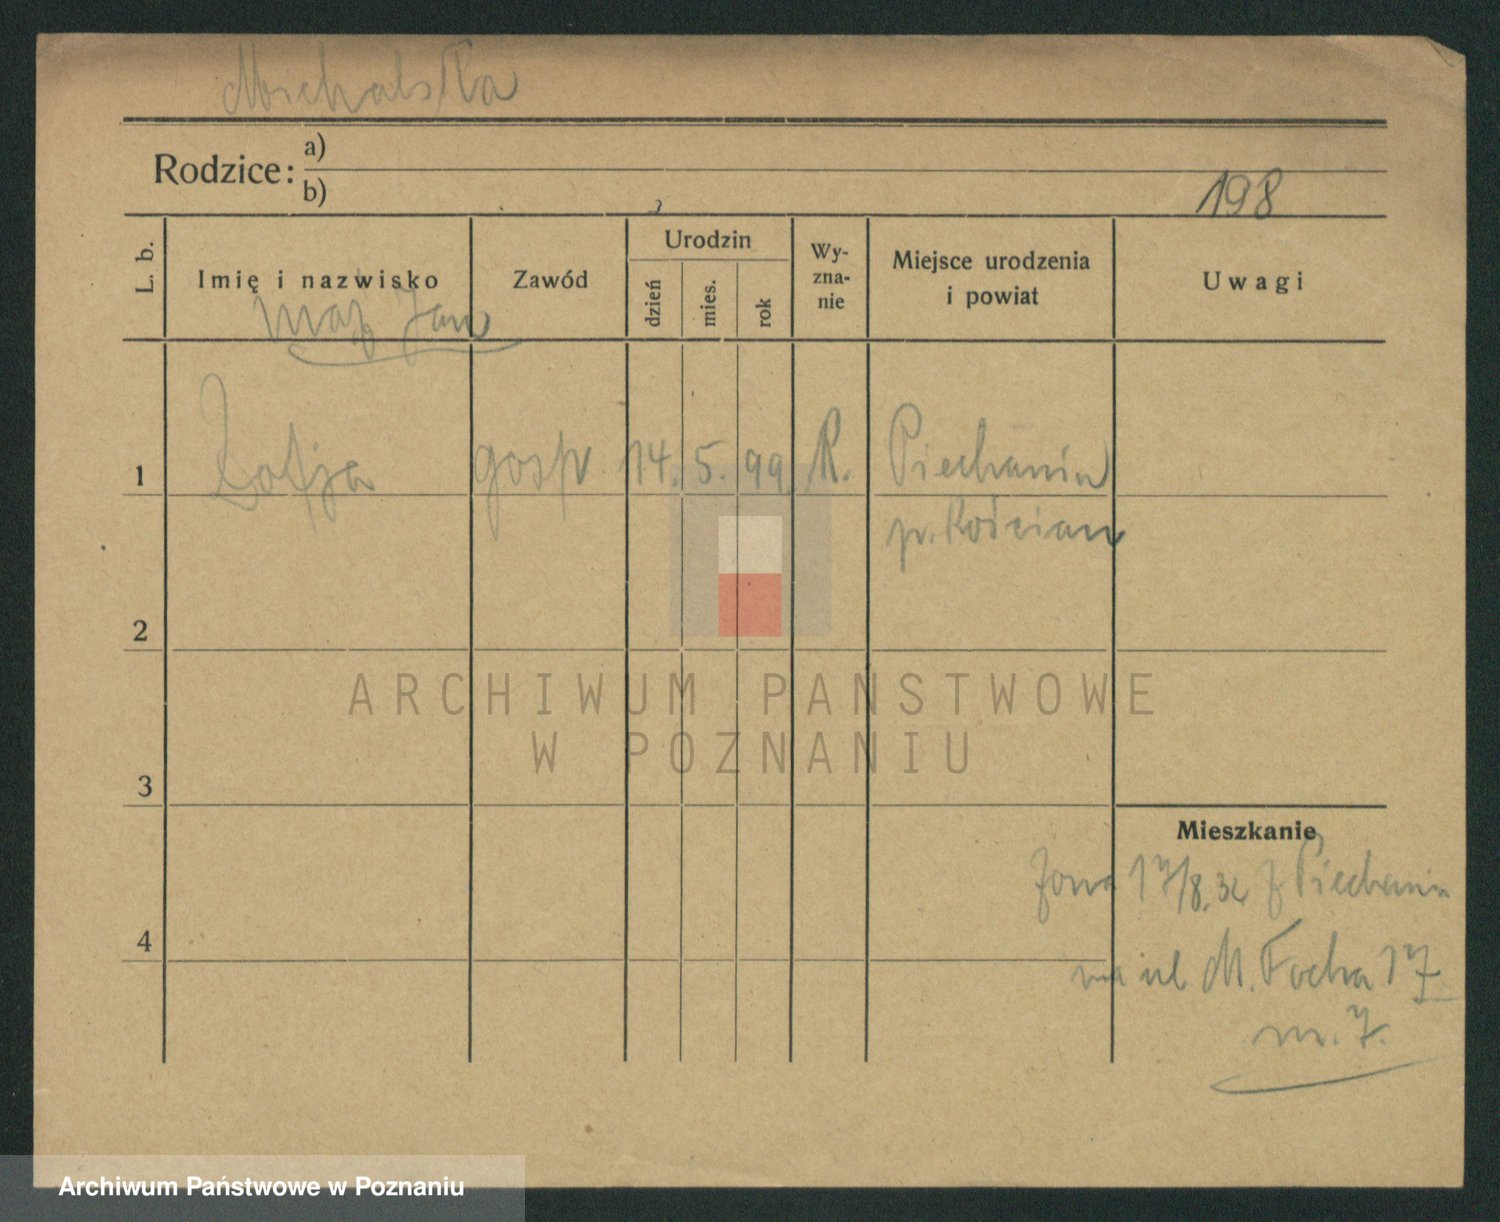 Michalska
Rodzice: a)
b)
198
L. b.
Imię i nazwisko
Zawód
Urodzin
dzień
mies.
rok
Wy-
zna-
nie
Miejsce urodzenia
i powiat
Uwagi
mąż Jan
1 Zofja gosp 14. 5. 99 R. Piechanin
p. Kościan
2
3
4
Mieszkanie
17/8. z Piechanin
na ul M. Focha 17
m. 7.
ARCHIWUM PAŃSTWOWE
W POZNANIU
Archiwum Państwowe w Poznaniu